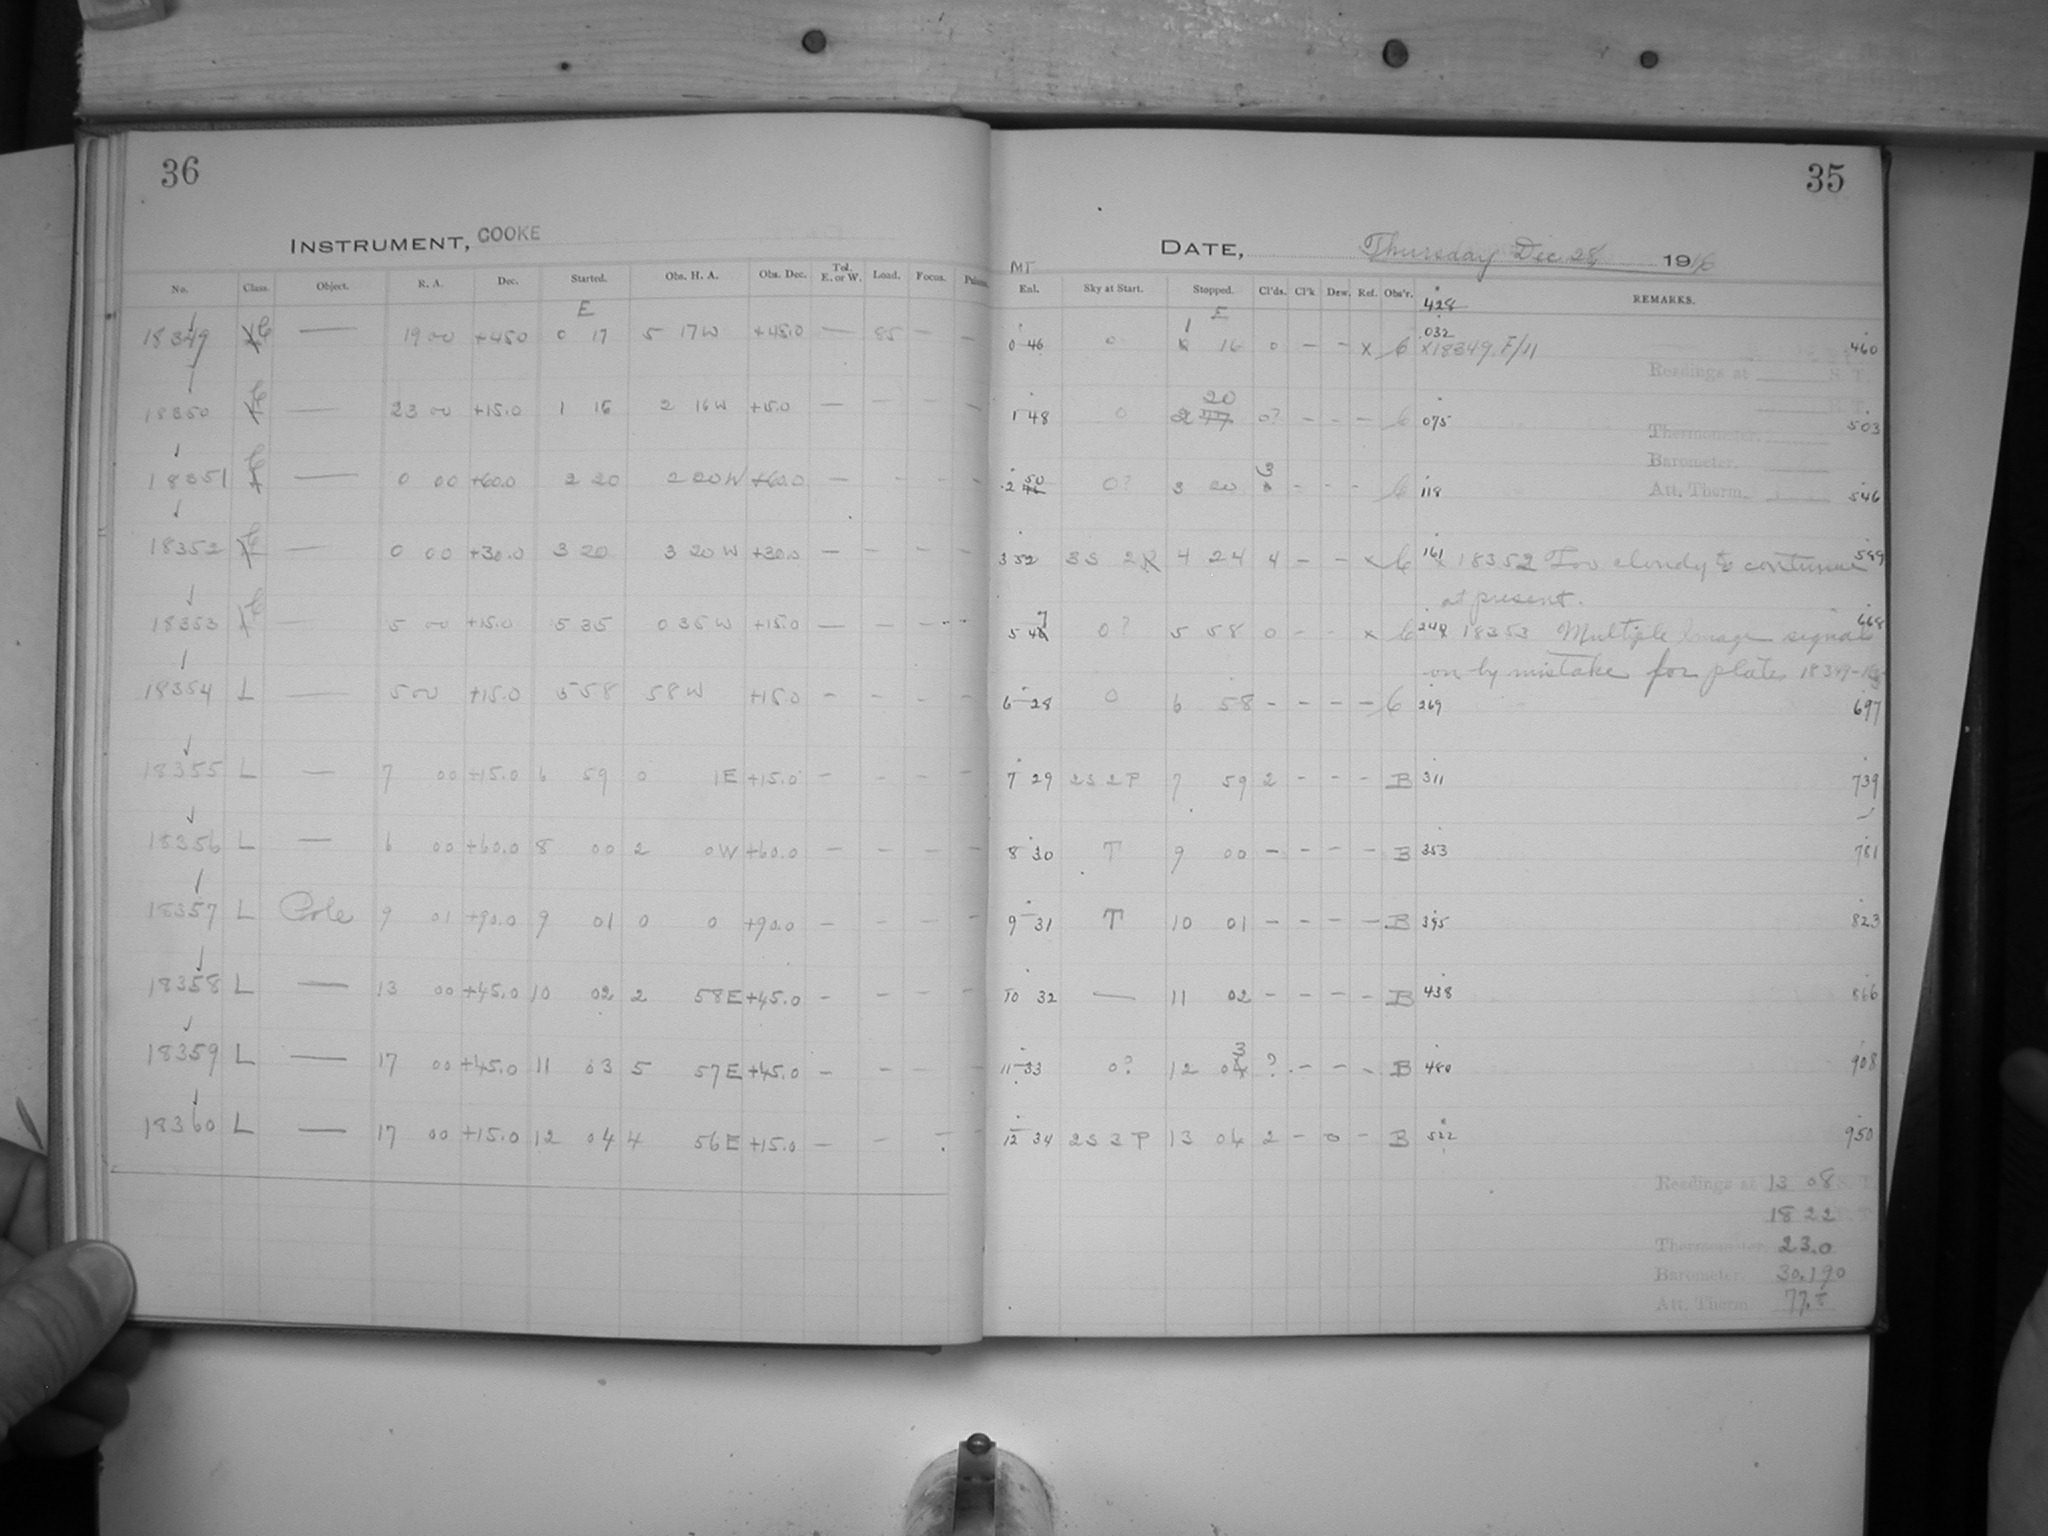 36
INSTRUMENT, COOKE
No. Class. Object. R. A. Dec. Started. Obs. H. A. Obs. Dec. Tel. E. or W. Load. Focus.
E
18349 — 19 00 +45.0 0 17 5 17 W +45.0 — 85 — —
18350 — 23 00 +15.0 1 16 2 16 W +15.0 — — — —
18351 — 0 00 +60.0 2 20 2 20 W +60.0 - - - -
18352 — 0 00 +30.0 3 20 3 20 W +30.0 — - - -
18353 — 5 00 +15.0 5 35 0 35 W +15.0 — — — -
18354 L — 5 00 +15.0 5 58 58 W +15.0 - - - -
18355 L — 7 00 +15.0 6 59 0 1E +15.0 - - - -
18356 L — 6 00 +60.0 8 00 2 0W +60.0 — — — —
18357 L Pole 9 01 +90.0 9 01 0 0 +90.0 — - - -
18358 L — 13 00 +45.0 10 02 2 58E +45.0 - - - -
18359 L — 17 00 +45.0 11 03 5 57E +45.0 — - - -
18360 L — 17 00 +15.0 12 04 4 56E +15.0 — - - -
35
DATE, Thursday Dec 28 1916
MT
Enl. Sky at Start. Stopped. Cl'ds. Cl'k Dew. Ref. Obs'r. 428 REMARKS.
E
0 46 0 1 16 0 - - x 6 .032 x18349 F/11 460
Readings at S. T.
1 48 0 2 20 0? - - - 6 075 503
Thermometer.
Barometer.
2 50 0? 3 20 3 - - - 6 118 Att. Therm. 546
3 52 3S 2R 4 24 4 - - x 6 161 x 18352 Too cloudy to continue 589
at present.
5 47 0? 5 58 0 - - x 6 240 x 18353 Multiple Image signals 668
on by mistake for plates 18349-
6 28 0 6 58 - - - - 6 269 697
7 29 2S 2P 7 59 2 - - - B 311 739
8 30 T 9 00 - - - - B 353 781
9 31 T 10 01 - - - - B 395 823
10 32 — 11 02 - - - - B 438 866
11 33 0? 12 03 ? - - - B 480 908
12 34 2S 3P 13 04 2 - 0 - B 522 950
Readings at 13 08 S. T.
18 22
Thermometer 23.0
Barometer 30.190
Att. Therm